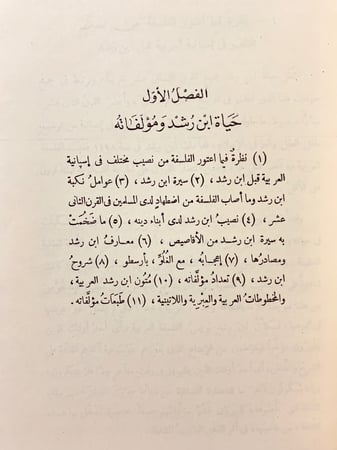 الفَصْلُ الأوّل
حَيَاة ابْن رُشْد وَمُؤلَفَاتُه
(١) نظرةٌ فيما اعتور الفلسفة من نصيب مختلف فى إسپانية
العربية قبل ابن رشد ، (٢) سيرة ابن رشد ، (٣) عواملُ نكبة
ابن رشد وما أصاب الفلسفة من اضطهادٍ لدى المسلمين فى القرن الثانى
عشر ، (٤) نصيبُ ابن رشد لدى أبناء دينه ، (٥) ما ضَخُمَتْ
به سيرة ابن رشد من الأقاصيص ، (٦) معارفُ ابن رشد
ومصادرُها ، (٧) إعجابُه ، مع الغُلُوِّ ، بأرسطو ، (٨) شروحُ
ابن رشد ، (٩) تعدادُ مؤلَّفاته ، (١٠) مُتُون ابن رشد العربية ،
والمخطوطاتُ العربية والعِبْرِية واللاتينية ، (١١) طَبَعَاتُ مؤلَّفاته .